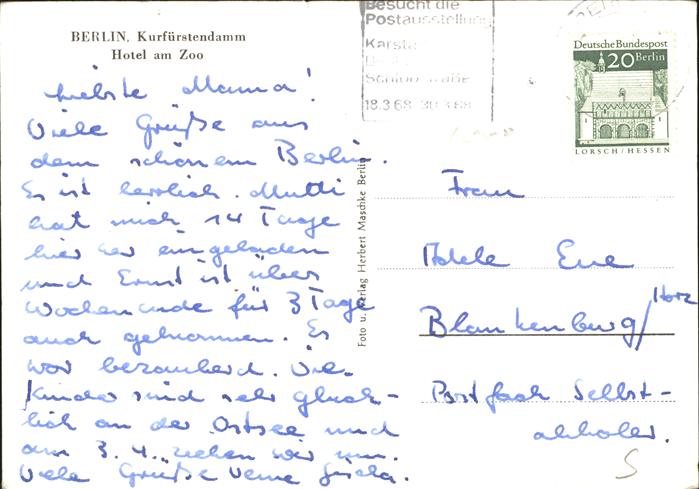 BERLIN, Kurfürstendamm
Hotel am Zoo
Liebste Mama!
Viele Grüße aus
dem schönem Berlin.
Es ist herrlich. Mutti
hat mich 14 Tage
hier her eingeladen
und Ernst ist über
Wochenende für 3 Tage
auch gekommen. Es
war bezaubernd. Die
Kinder sind sehr glück-
lich an der Ostsee und
am 3. 4. ziehen wir um.
Viele Grüße Deine
Foto u. Verlag Herbert Maschke Berlin
Besucht die
Postausstellung
Karsta
Schloßstraße
18.3.68 - 30.3.68
Deutsche Bundespost
20 Berlin
LORSCH/HESSEN
Frau
Adele Eue
Blankenburg/Harz
Postfach Selbst-
abholer.
S